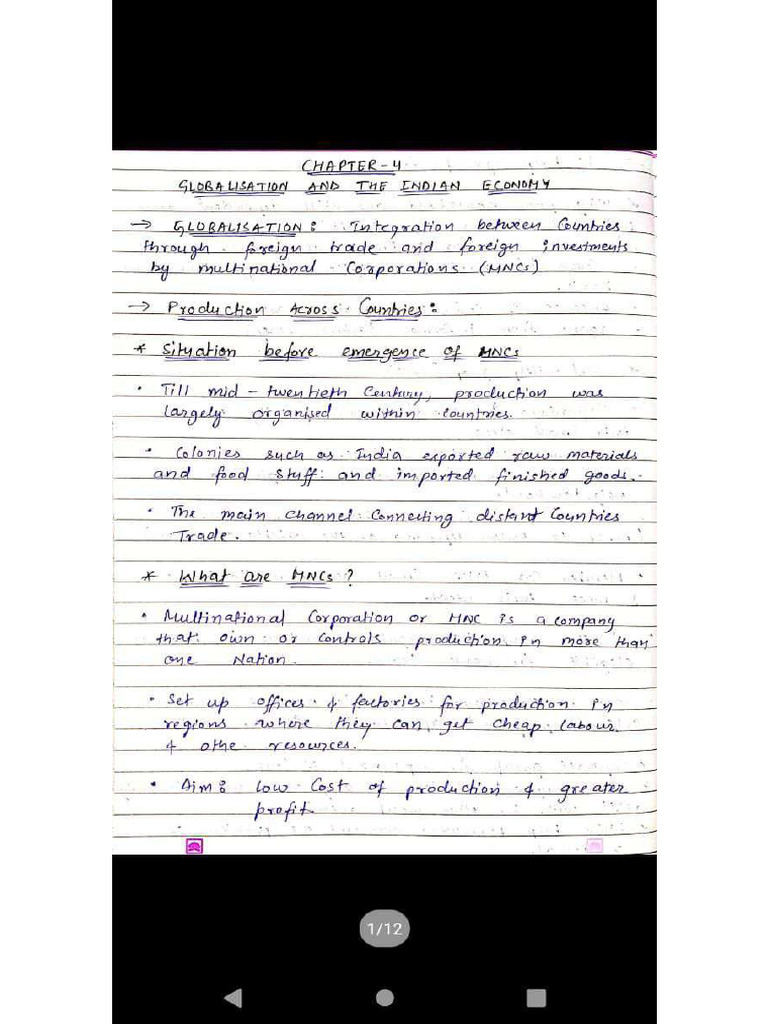 CHAPTER-4
GLOBALISATION AND THE INDIAN ECONOMY
→ GLOBALISATION: Integration between Countries
through foreign trade and foreign investments
by multinational Corporations (MNCs)
→ Production Across Countries:
* Situation before emergence of MNCs
• Till mid-twentieth Century, production was
largely organised within countries.
• Colonies such as India exported raw materials
and food stuff and imported finished goods.
• The main channel connecting distant Countries
Trade.
* What are MNCs?
• Multinational Corporation or MNC is a company
that own or controls production in more than
one Nation.
• Set up offices & factories for production in
regions where they can get cheap labour
& othe resources.
• Aim: low cost of production & greater
profit.
1/12